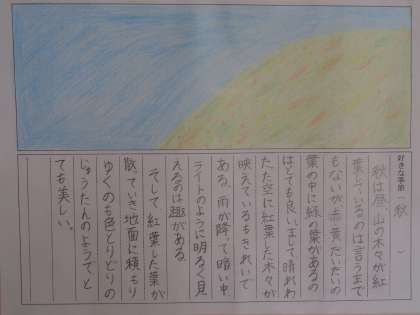 好きな季節（秋）
秋は昼、山の木々が紅
葉しているのは言うまで
もないが赤、黄だいだいの
葉の中に緑の葉があるの
はとても良い。まして晴れわ
たった空に紅葉した木々が
映えているもきれいで
ある。雨が降って暗い中
ライトのように明るく見
えるのは趣がある。
そして紅葉した葉が
散っていき地面に積もり
ゆくのも色とりどりの
じゅうたんのようで、と
ても美しい。